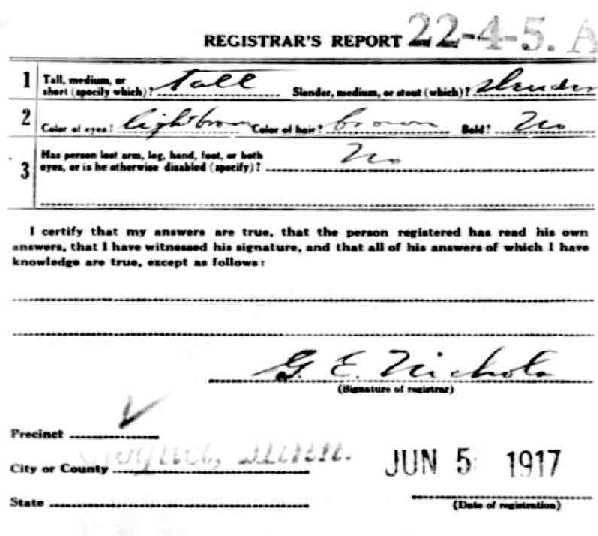 REGISTRAR'S REPORT 22-4-5. A
1 Tall, medium, or short (specify which)? tall Slender, medium, or stout (which)? slender
2 Color of eyes? light brown Color of hair? brown Bald? No
3 Has person lost arm, leg, hand, foot, or both eyes, or is he otherwise disabled (specify)? No
I certify that my answers are true, that the person registered has read his own
answers, that I have witnessed his signature, and that all of his answers of which I have
knowledge are true, except as follows:
G. E. Nichols
(Signature of registrar)
Precinct
City or County
JUN 5 1917
State
(Date of registration)